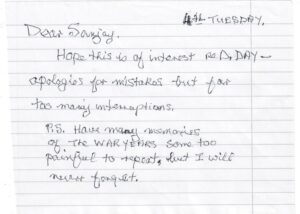 4th TUESDAY.
Dear Sanjay.
Hope this is of interest re D.DAY -
apologies for mistakes but far
too many interruptions.
P.S. Have many memories
of the WAR YEARS some too
painful to repeat, but I will
never forget.